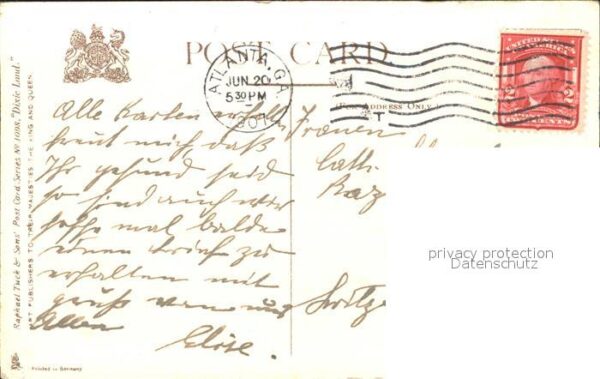 POST CARD
ATLANTA, GA.
JUN 20
5 30 PM
1907
(For Address Only.)
T
UNITED STATES
OF AMERICA
2 2
TWO CENTS
Alle Karten erhalten
freut mich daß
Ihr gesund seid
so sind auch wir
hoffe mal balde
einen brief zu
erhalten mit
gruß van uns
Allen
Elise.
Cath
Kaz
Switz
privacy protection
Datenschutz
Raphael Tuck & Sons' Post Card Series No 1098, "Dixie Land."
ART PUBLISHERS TO THEIR MAJESTIES THE KING AND QUEEN.
Printed in Germany